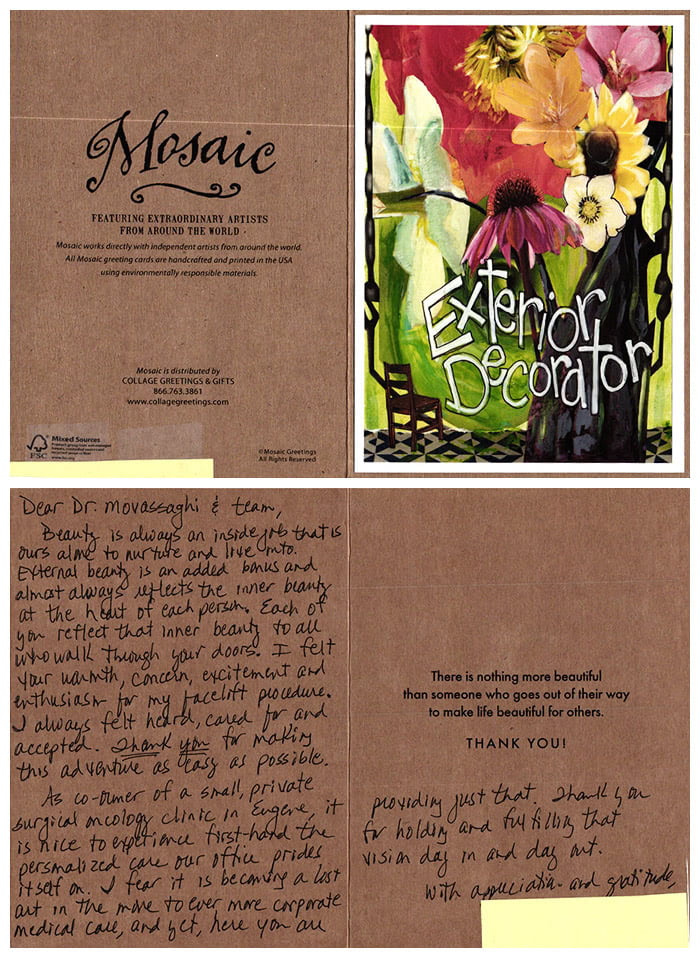 Mosaic
FEATURING EXTRAORDINARY ARTISTS
FROM AROUND THE WORLD
Mosaic works directly with independent artists from around the world.
All Mosaic greeting cards are handcrafted and printed in the USA
using environmentally responsible materials.
Mosaic is distributed by
COLLAGE GREETINGS & GIFTS
866.763.3861
www.collagegreetings.com
FSC
Mixed Sources
©Mosaic Greetings
All Rights Reserved
Exterior
Decorator
Dear Dr. Movassaghi & team,
Beauty is always an inside job that is
ours alone to nurture and live into.
External beauty is an added bonus and
almost always reflects the inner beauty
at the heart of each person. Each of
you reflect that inner beauty to all
who walk through your doors. I felt
your warmth, concern, excitement and
enthusiasm for my facelift procedure.
I always felt heard, cared for and
accepted. Thank you for making
this adventure as easy as possible.
As co-owner of a small, private
surgical oncology clinic in Eugene, it
is nice to experience first-hand the
personalized care our office prides
itself on. I fear it is becoming a lost
art in the move to ever more corporate
medical care, and yet, here you are
There is nothing more beautiful
than someone who goes out of their way
to make life beautiful for others.
THANK YOU!
providing just that. Thank you
for holding and fulfilling that
vision day in and day out.
With appreciation and gratitude,